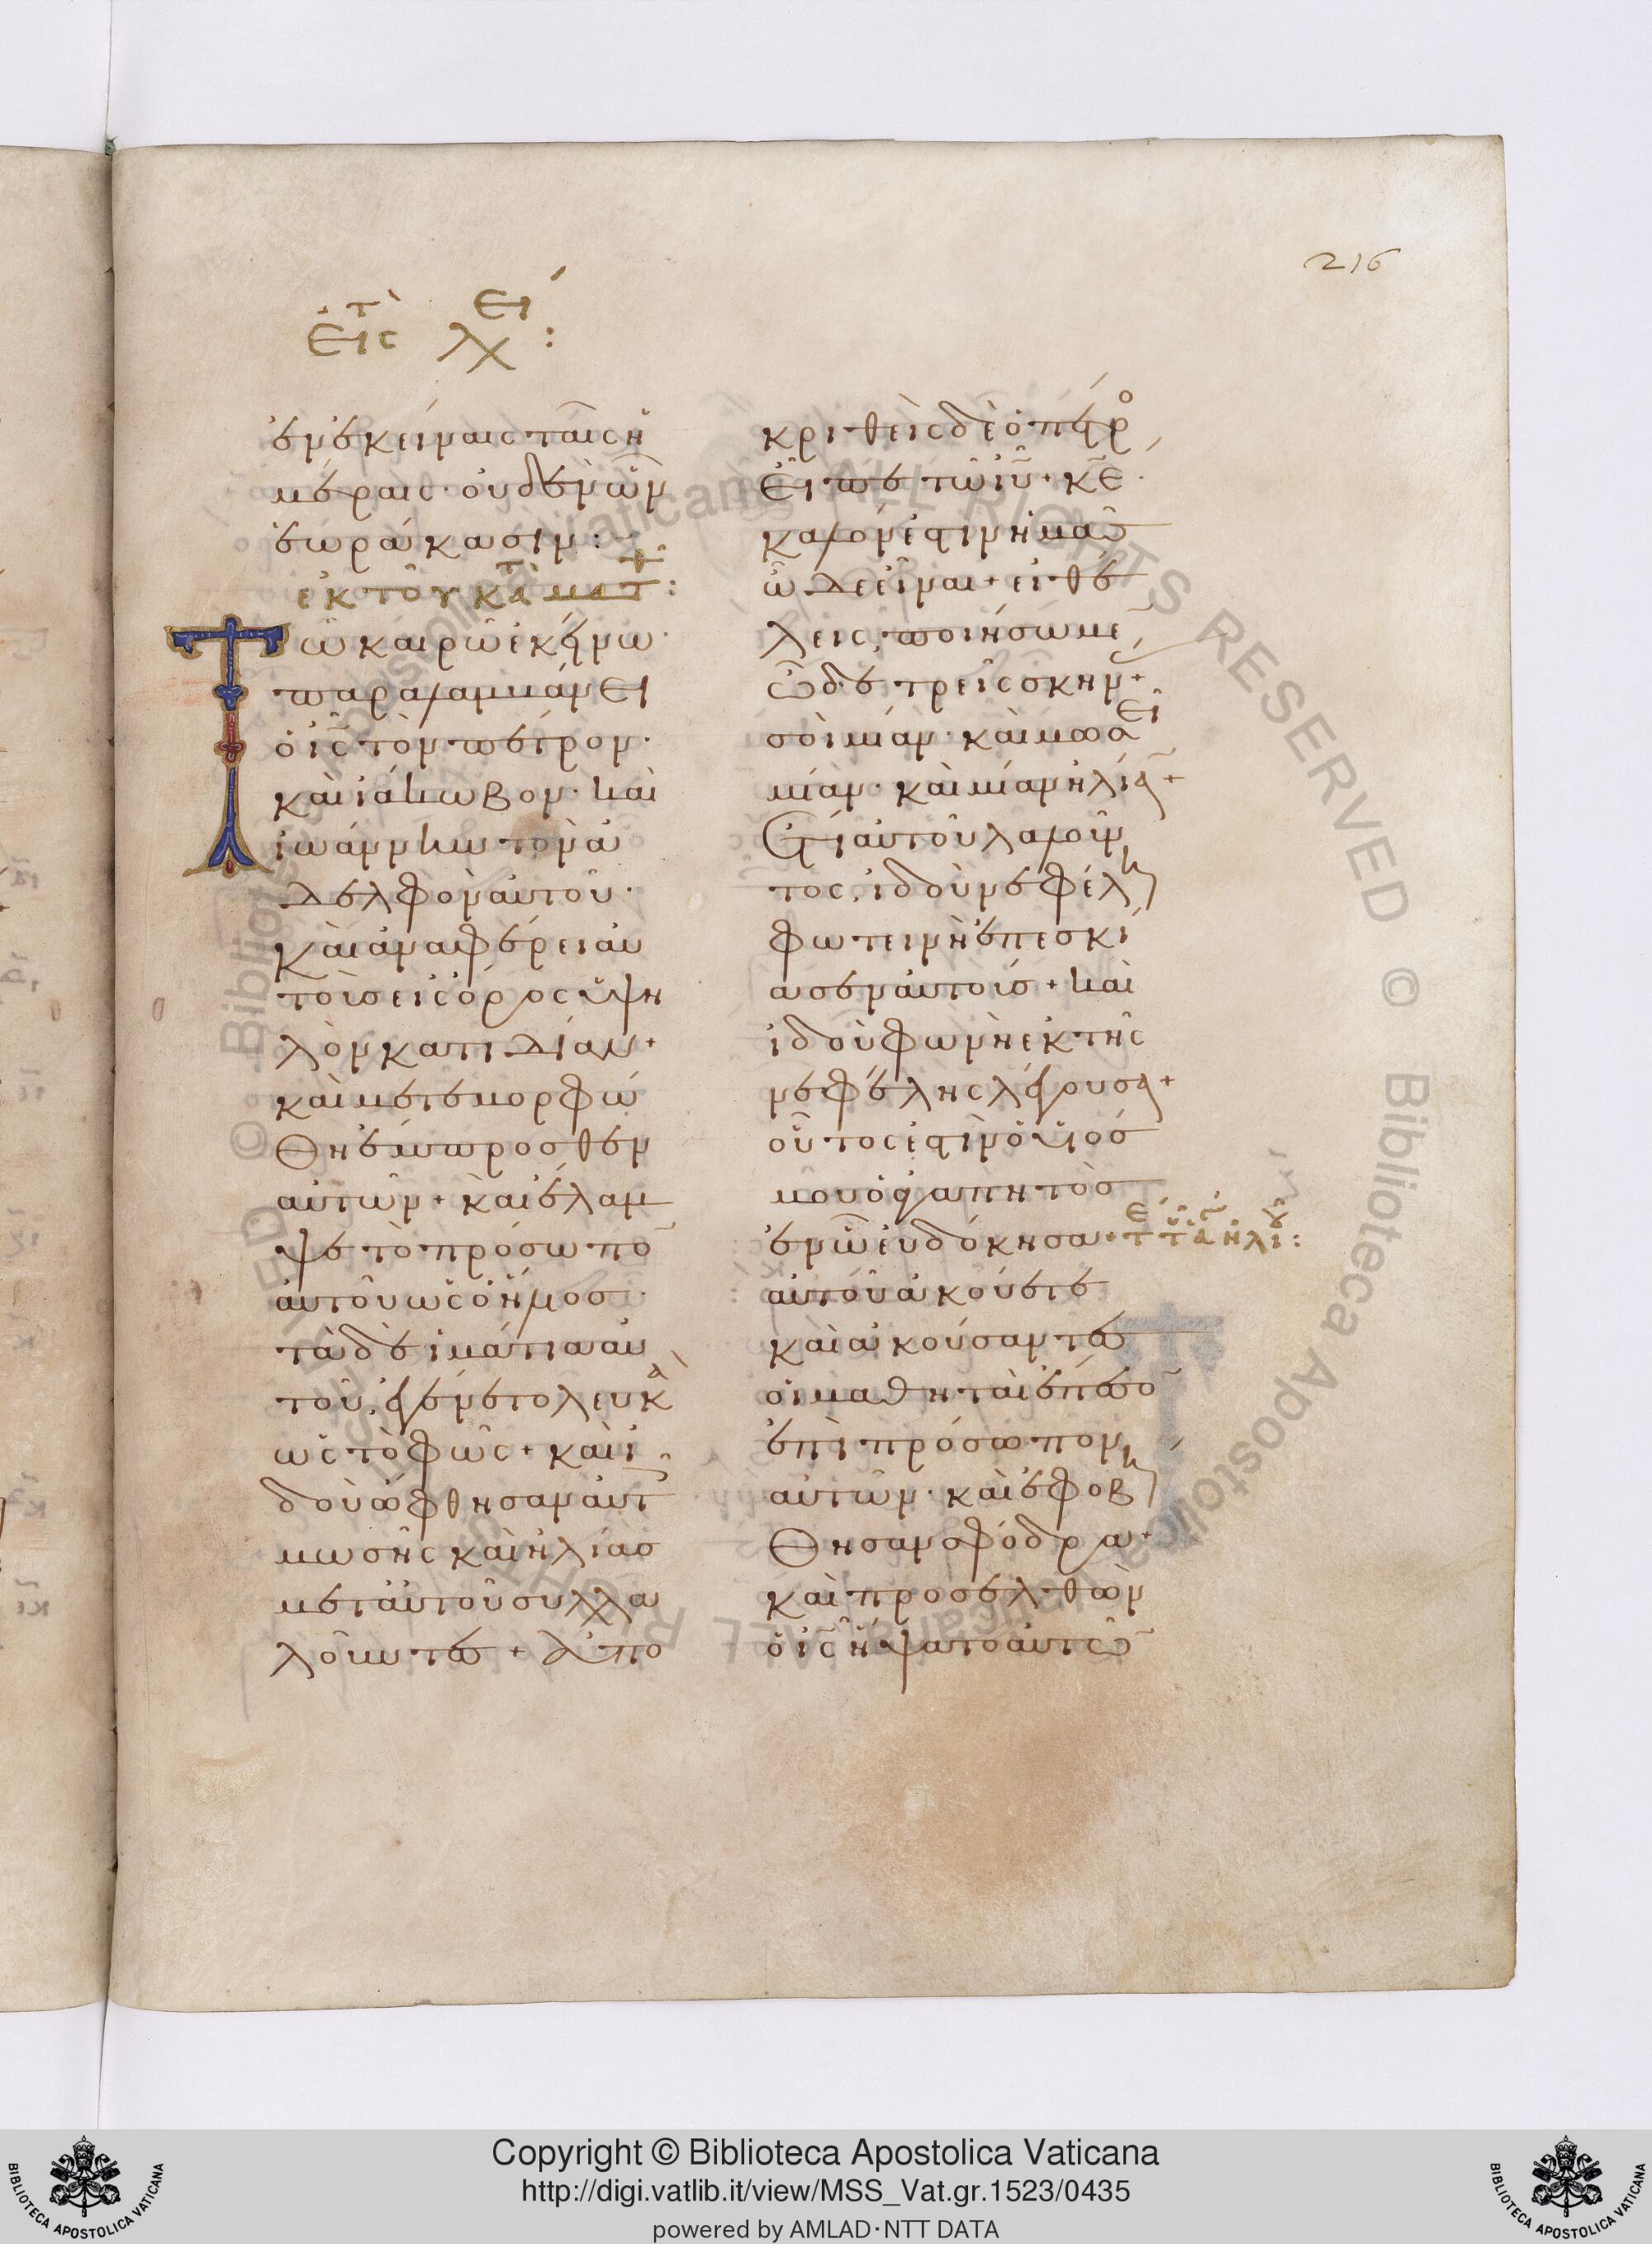 216
Εἰς τὴ λχ ει:
ἐν ἐκείναις ταῖς ἡ
μέραις· οὐδὲν ὧν
ἑωράκασιν:
ἐκ τοῦ κατὰ ματθ:
Τῶ καιρῶ ἐκείνω·
παραλαμβάνει
ὁ ις τὸν πέτρον·
καὶ ἰάκωβον· καὶ
ἰωάννην τὸν ἀ
δελφὸν αὐτοῦ·
καὶ ἀναφέρει αὐ
τοὺς εἰς ὄρος ὑψη
λὸν κατιδίαν+
καὶ μετεμορφώ
θη ἔμπροσθεν
αὐτῶν+ καὶ ἔλαμ
ψε τὸ πρόσωπο̄
αὐτοῦ ὡς ὁ ἥλιος·
τὰ δὲ ἱμάτια αὐ
τοῦ, ἐγένετο λευκὰ
ὡς τὸ φῶς+ καὶ ἰ
δοὺ ὤφθησαν αὐτ
μωσῆς καὶ ἠλίας
μεταὐτοῦ συλλα
λοῦντες+ ἀπο
κριθεὶς δὲ ὁ πέτρο
εἶπε τῶ ιυ· κε·
καλόν ἐστιν ἡμᾶς
ὧδε εἶναι+ εἰ θέ
λεις, ποιήσωμε
ὧδε τρεῖς σκην+
σοὶ μίαν· καὶ μωσεῖ
μίαν· καὶ μίαν ἠλία+
ἔτι αὐτοῦ λαλοῦν
τος, ἰδοὺ νεφέλη
φωτεινὴ ἐπεσκί
ασεν αὐτοίς+ καὶ
ἰδοὺ φωνὴ ἐκ τῆς
νεφέλης λέγουσα+
οὗτος ἐστὶν ὁ υἱός
μου ὁ ἀγαπητὸς
ἐν ὧ εὐδόκησα+
αὐτοῦ ἀκούετε
καὶ ἀκούσαντες
οἱ μαθηταὶ ἔπεσο̄
ἐπὶ πρόσωπον
αὐτῶν· καὶ ἐφοβή
θησαν σφόδρα+
καὶ προσελθὼν
ὁ ις ἥψατο αὐτῶ
Copyright © Biblioteca Apostolica Vaticana
http://digi.vatlib.it/view/MSS_Vat.gr.1523/0435
powered by AMLAD·NTT DATA
BIBLIOTECA APOSTOLICA VATICANA
BIBLIOTECA APOSTOLICA VATICANA
© Biblioteca Apostolica Vaticana ALL RIGHTS RESERVED © Biblioteca Apostolica Vaticana ALL RIGHTS RESERVED